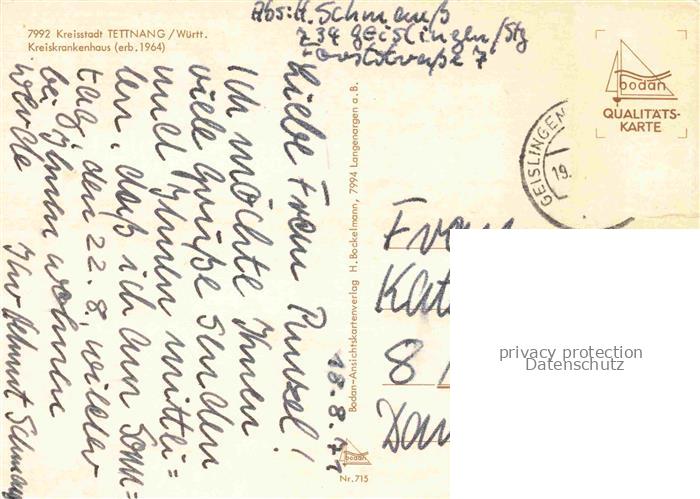 7992 Kreisstadt TETTNANG / Württ.
Kreiskrankenhaus (erb. 1964)
Abs: H. Schmauß
734 Geislingen/Stg
Forststraße 7
bodan
QUALITÄTS-
KARTE
GEISLINGEN
19.
18.8.71
Liebe Frau Punkel!
Ich möchte Ihnen
viele Grüße senden
und Ihnen mittei=
len, daß ich am Sonn=
tag, den 22.8. wieder
bei Ihnen wohnen
werde
Ihr Helmut Schmauß
Bodan-Ansichtskartenverlag H. Bockelmann, 7994 Langenargen a. B.
bodan
Nr. 715
Frau
8
privacy protection
Datenschutz